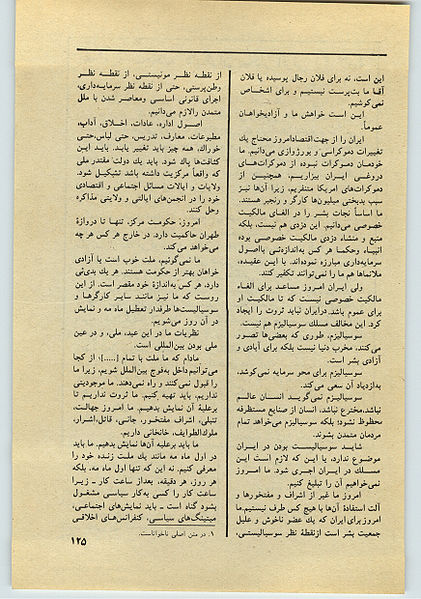 این است، نه برای فلان رجال پوسیده یا فلان
آقا ما بت‌پرست نیستیم و برای اشخاص
نمی‌کوشیم.
این است خواهش ما و آزادیخواهان
عموماً.
ایران را از جهت اقتصاد امروز محتاج یك
تغییرات دموکراسی و بورژوازی می‌دانیم. ما
خودمان دموکرات نبوده از دموکرات‌های
دروغی ایران بیزاریم، همچنین از
دموکرات‌های امریکا متنفریم، زیرا آن‌ها نیز
سبب بدبختی میلیون‌ها کارگر و رنجبر هستند.
ما اساساً نجات بشر را در الغای مالکیت
خصوصی می‌دانیم. این دزدی هم نیست، بلکه
منبع و منشاء دزدی مالکیت خصوصی بوده
انبیاء وحکما هر کس به‌اندازه‌ئی بااصول
سرمایه‌داری مبارزه نموده‌اند. با این عقیده،
ملانماها هم ما را نمی‌توانند تکفیر کنند.
ولی ایران امروز مساعد برای الغاء
مالکیت خصوصی نیست که تا مالکیت او
برای عموم باشد. در ایران نباید ثروت را ایجاد
کرد. این مخالف مسلك سوسیالیزم هم نیست.
سوسیالیزم، طوری که بعضی‌ها تصور
می‌کنند، مخرب دنیا نیست بلکه برای آبادی و
آزادی بشر است.
سوسیالیزم برای محو سرمایه نمی‌کوشد،
به‌ازدیاد آن سعی می‌کند.
سوسیالیزم نمی‌گوید انسان عالم
نباشد، مخترع نباشد، انسان از صنایع مستظرفه
محظوظ نشود؛ بلکه سوسیالیزم می‌خواهد تمام
مردمان متمدن بشوند.
شاید سوسیالیست بودن در ایران
موضوع ندارد، یا این که لازم است این
مسلك در ایران اجری شود. ما امروز
نمی‌خواهیم آن را تبلیغ کنیم.
امروز ما غیر از اشراف و مفتخورها و
آلت استفادهٔ آن‌ها با هیچ کس طرف نیستیم. ما
امروز برای ایران که یك عضو ناخوش و علیل
جمعیت بشر است از نقطهٔ نظر سوسیالیستی،
از نقطه نظر مونیستی، از نقطه نظر
وطن‌پرستی، حتی از نقطه نظر سرمایه‌داری،
اجرای قانونی اساسی ومعاصر شدن با ملل
متمدن رالازم می‌دانیم.
اصول اداره، عادات، اخلاق، آداب،
مطبوعات، معارف، تدریس، حتی لباس، حتی
خوراك، همه چیز باید تغییر یابد. باید این
کثافات پاك شود. باید یك دولت مقتدر ملی
که واقعاً مرکزیت داشته باشد تشکیل شود.
ولایات و ایالات مسائل اجتماعی و اقتصادی
خود را در انجمن‌های ایالتی و ولایتی مذاکره
وحل کنند.
امروز، حکومت مرکز، تنها تا دروازهٔ
طهران حاکمیت دارد. در خارج هر کس هر چه
می‌خواهد می‌کند.
ما نمی‌گوئیم، ملت خوب است یا آزادی
خواهان بهتر از حکومت هستند. هر یك بدی‌ئی
دارد، هر کس به‌اندازه خود مقصر است. از این
روست که ما نیز مانند سایر کارگرها و
سوسیالیست‌ها طرفدار تعطیل ماه مه و نمایش
در آن روز می‌شویم.
نظریات ما در این عید، ملی، و در عین
ملی بودن بین‌المللی است.
مادام که ما ملت با تمام [.....]۱ از کجا
می‌توانیم داخل به‌فوج بین‌الملل شویم، زیرا ما
را قبول نمی‌کنند و راه نمی‌دهند. ما موجودیتی
نداریم، باید تهیه کنیم. ما ثروت نداریم تا
برعلیهٔ آن نمایش بدهیم. ما امروز جهالت،
تنبلی، اشراف مفتخور، جانی، قاتل، اشرار،
ملوك‌الطوایف، خانخانی داریم.
ما باید برعلیه آن‌ها نمایش بدهیم. ما باید
در اول ماه مه مانند یك ملت زنده خود را
معرفی کنیم. نه این که تنها اول ماه مه، بلکه
هر روز، هر دقیقه، بعداز ساعت کار ـ زیرا
ساعت کار را کسی به‌کار سیاسی مشغول
بشود گناه است ـ باید نمایش‌های اجتماعی،
میتینگ‌های سیاسی، کنفرانس‌های اخلاقی
۱. در متن اصلی ناخواناست.
۱۲۵